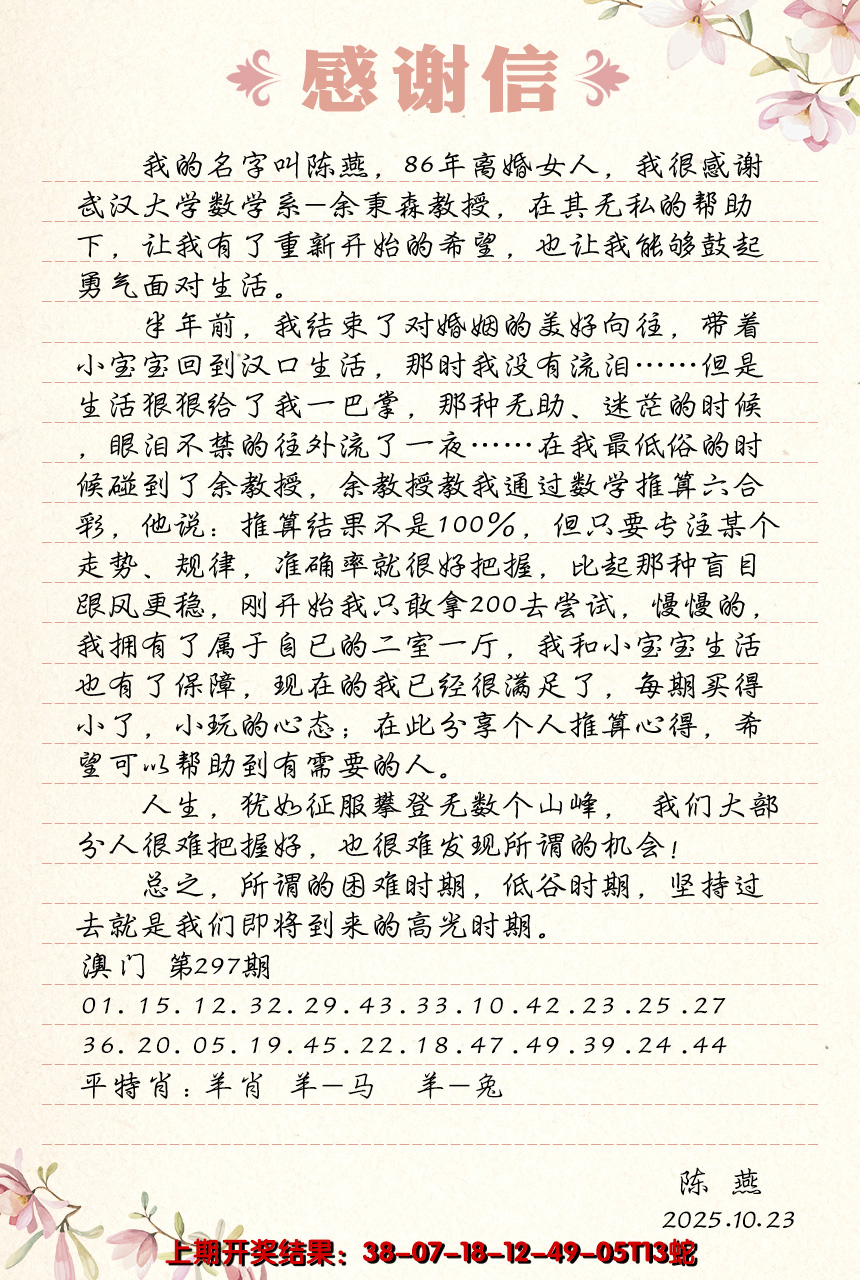 感谢信
我的名字叫陈燕，86年离婚女人，我很感谢
武汉大学数学系-余秉森教授，在其无私的帮助
下，让我有了重新开始的希望，也让我能够鼓起
勇气面对生活。
半年前，我结束了对婚姻的美好向往，带着
小宝宝回到汉口生活，那时我没有流泪……但是
生活狠狠给了我一巴掌，那种无助、迷茫的时候
，眼泪不禁的往外流了一夜……在我最低俗的时
候碰到了余教授，余教授教我通过数学推算六合
彩，他说：推算结果不是100%，但只要专注某个
走势、规律，准确率就很好把握，比起那种盲目
跟风更稳，刚开始我只敢拿200去尝试，慢慢的，
我拥有了属于自已的二室一厅，我和小宝宝生活
也有了保障，现在的我已经很满足了，每期买得
小了，小玩的心态；在此分享个人推算心得，希
望可以帮助到有需要的人。
人生，犹如征服攀登无数个山峰， 我们大部
分人很难把握好，也很难发现所谓的机会！
总之，所谓的困难时期，低谷时期，坚持过
去就是我们即将到来的高光时期。
澳门 第297期
01.15.12.32.29.43.33.10.42.23.25.27
36.20.05.19.45.22.18.47.49.39.24.44
平特肖：羊肖 羊-马 羊-兔
陈 燕
2025.10.23
上期开奖结果：38-07-18-12-49-05T13蛇